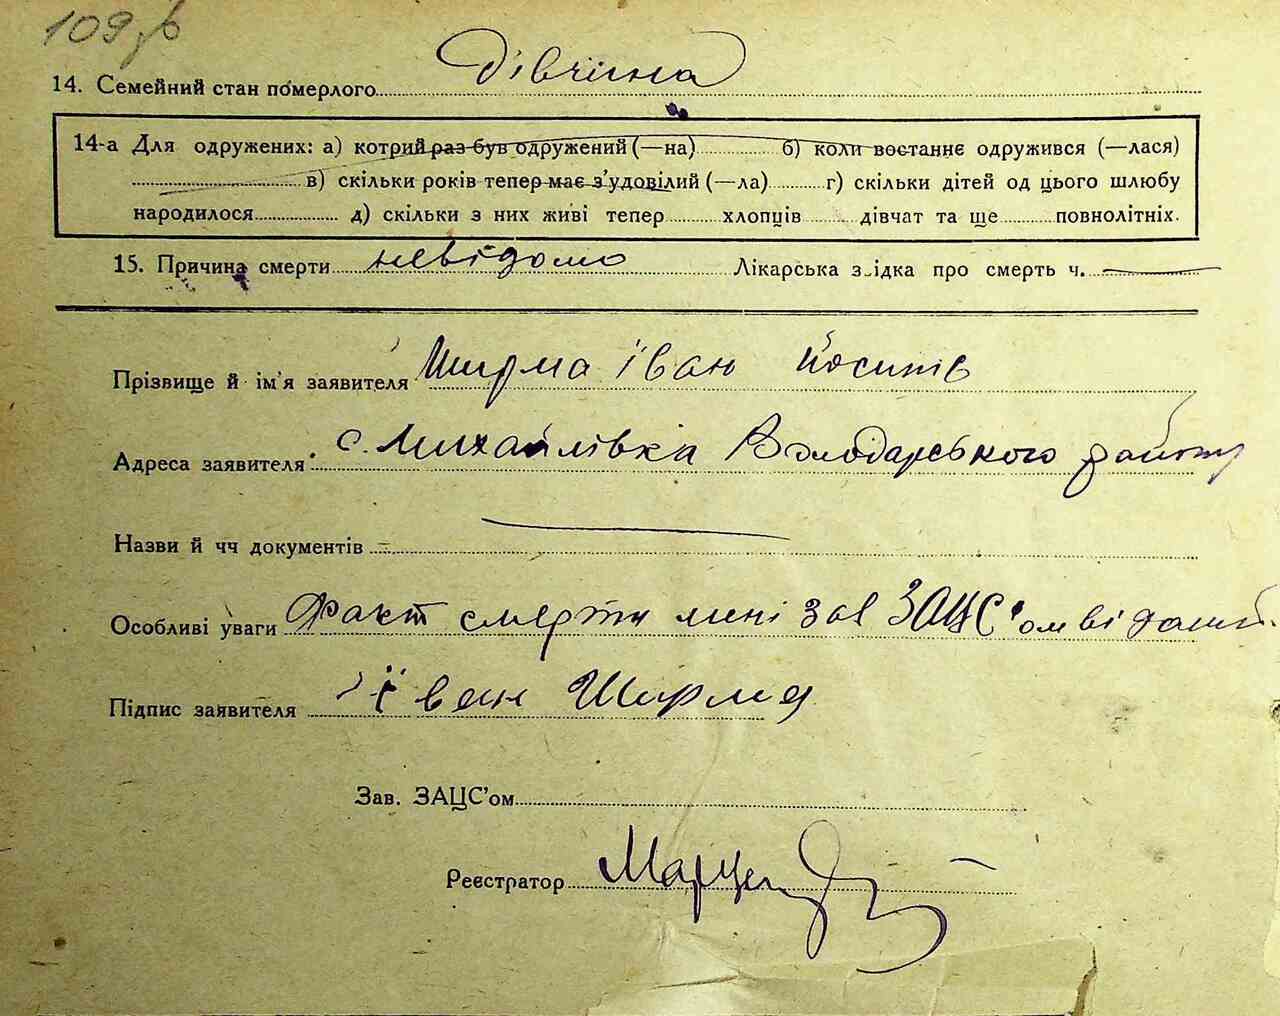 109
14. Семейний стан померлого дівчина
14-а Для одружених: а) котрий раз був одружений (—на) б) коли востаннє одружився (—лася)
в) скільки років тепер має з’удовілий (—ла) г) скільки дітей од цього шлюбу
народилося д) скільки з них живі тепер хлопців дівчат та ще повнолітніх.
15. Причина смерти невідомо Лікарська з..ідка про смерть ч.
Прізвище й ім’я заявителя Ширма Іван Йосипів
Адреса заявителя с. Михайлівка Володарського району
Назви й чч документів
Особливі уваги Факт смерти мені зав ЗАЦС’ом відомий.
Підпис заявителя Іван Ширма
Зав. ЗАЦС’ом
Реєстратор